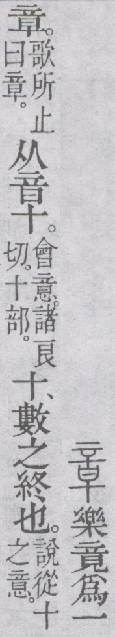 章樂竟爲一
章。歌所止曰章。从音十。會意。諸良切。十部。十、數之終也。說從十之意。